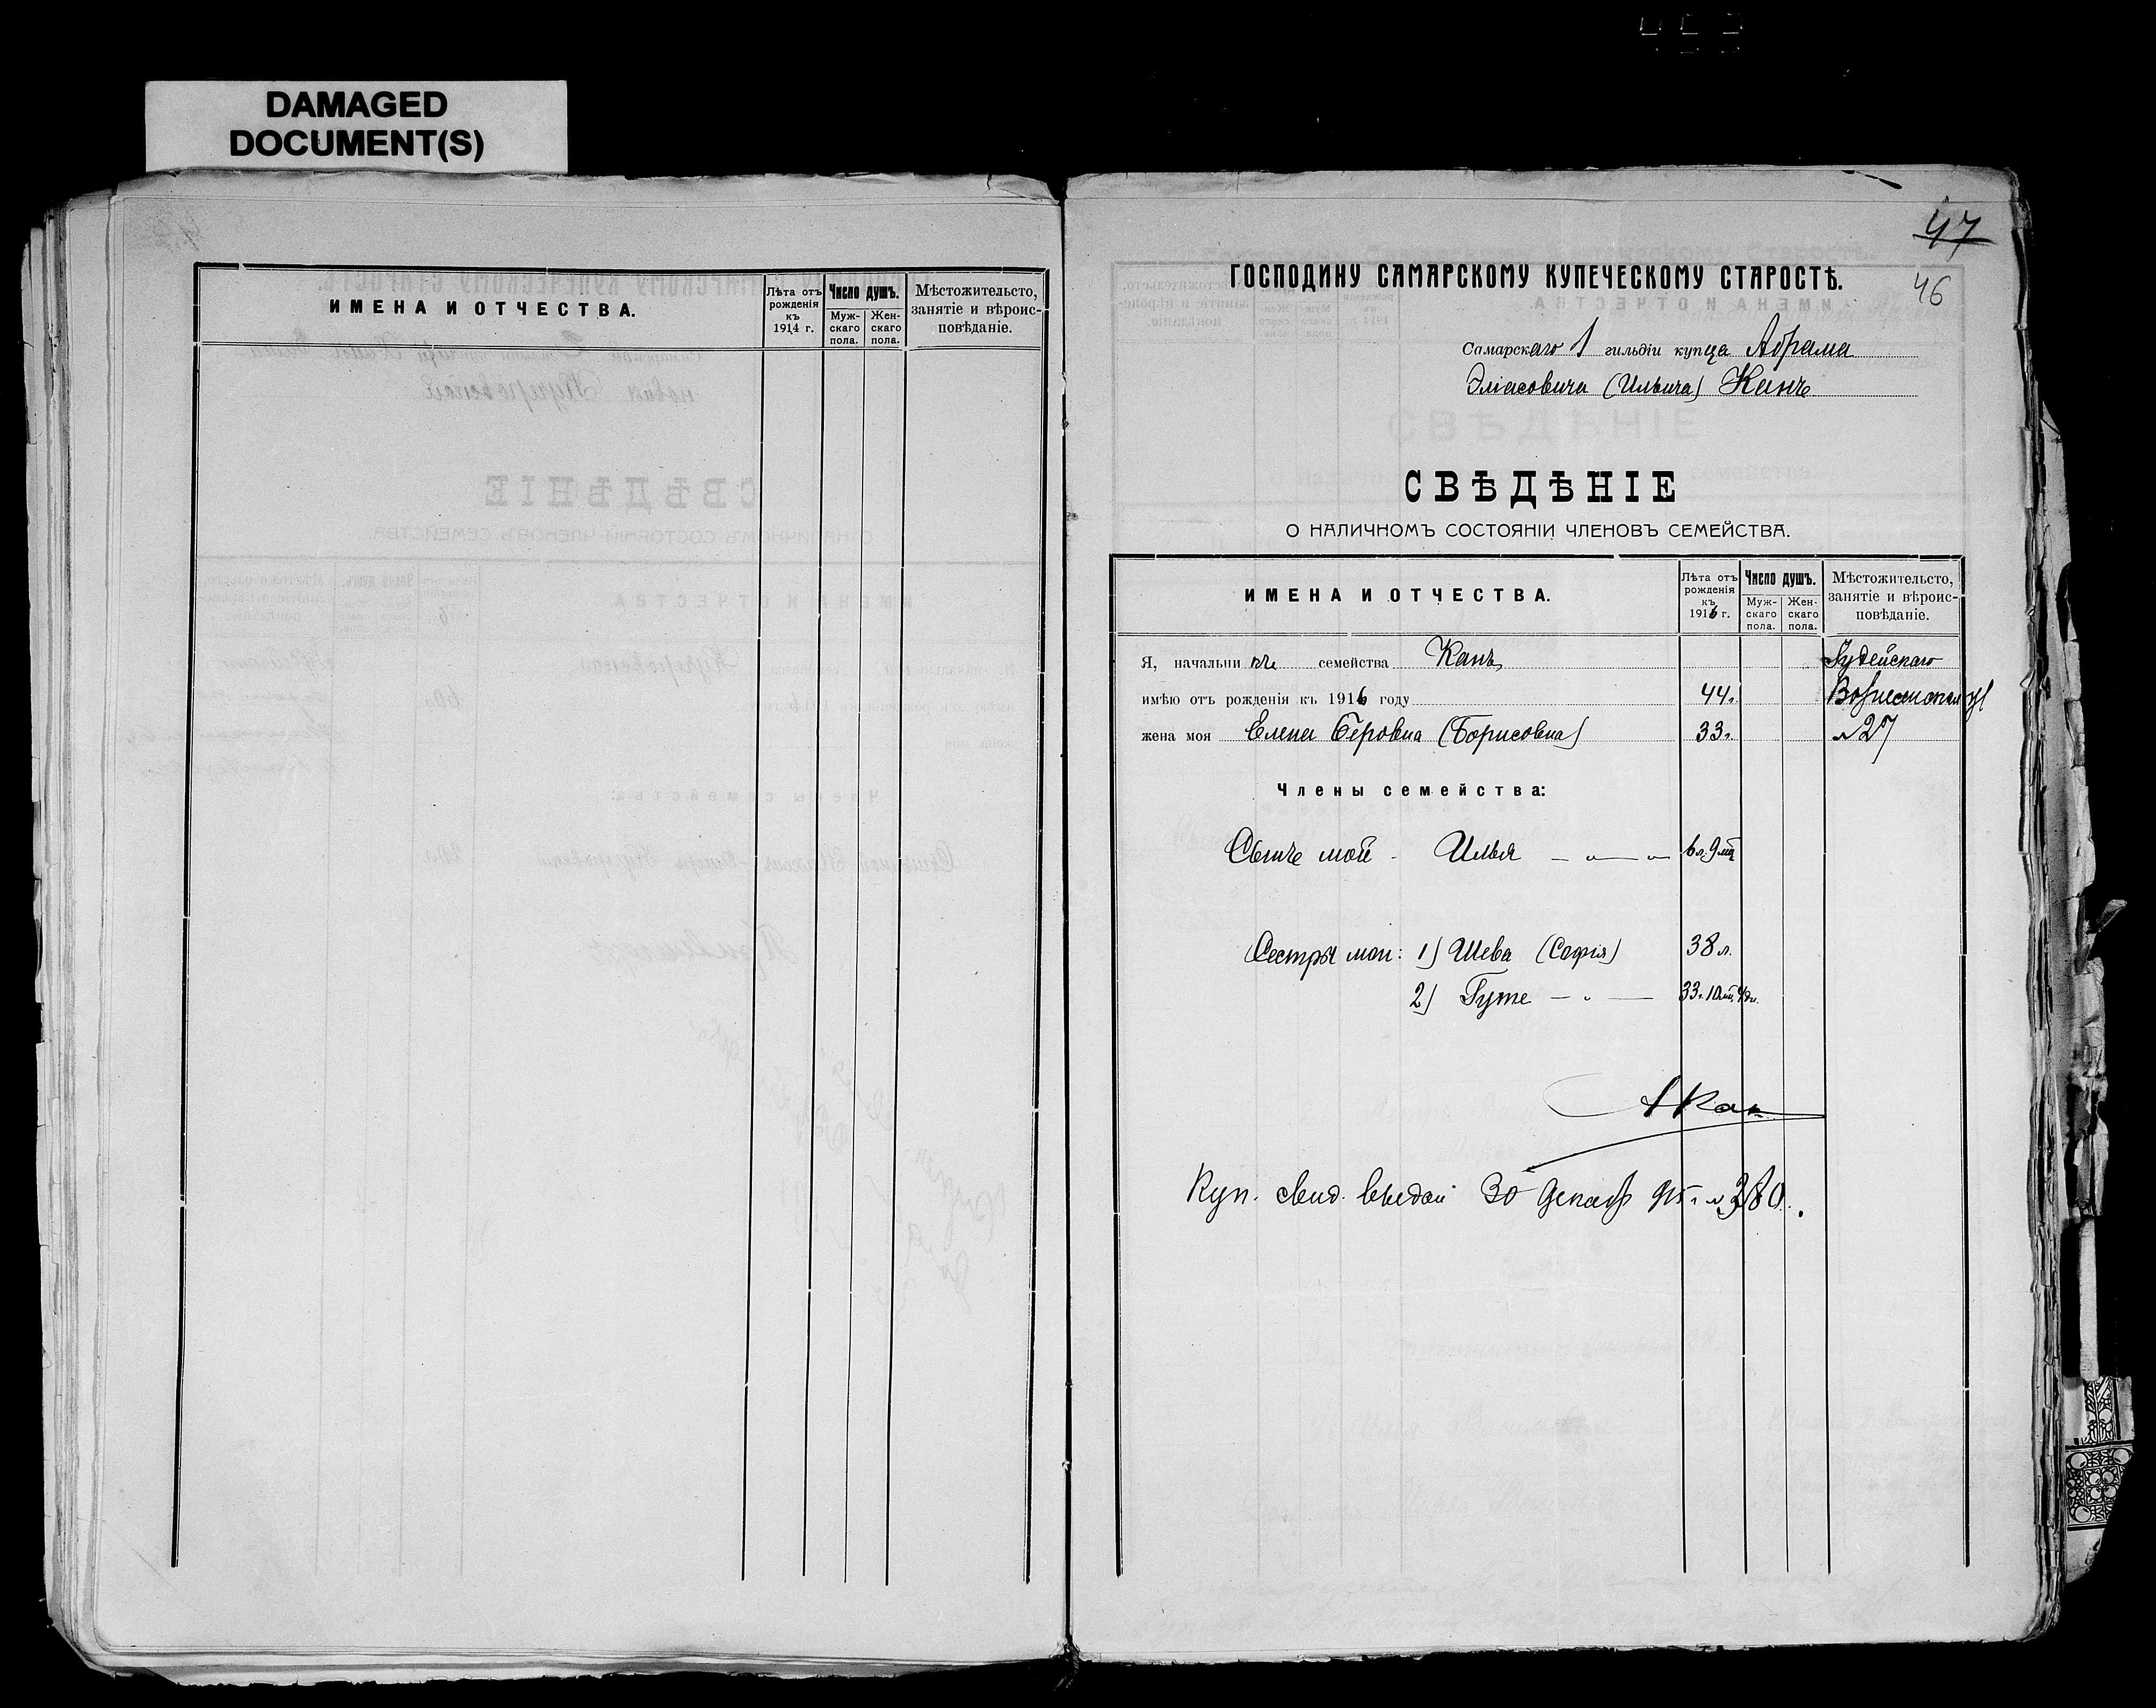 DAMAGED
DOCUMENT(S)
ИМЕНА И ОТЧЕСТВА.
Лѣта отъ рожденія къ 1914 г.
Число душъ.
Муж-скаго пола.
Жен-скаго пола.
Мѣстожительсто, занятіе и вѣроис-повѣданіе.
47
46
ГОСПОДИНУ САМАРСКОМУ КУПЕЧЕСКОМУ СТАРОСТѢ.
Самарскаго 1 гильдіи купца Абрама
Эліасовича (Ильича) Канъ
СВѢДѢНІЕ
О НАЛИЧНОМЪ СОСТОЯНІИ ЧЛЕНОВЪ СЕМЕЙСТВА.
ИМЕНА И ОТЧЕСТВА.
Лѣта отъ рожденія къ 1916 г.
Число душъ.
Муж-скаго пола.
Жен-скаго пола.
Мѣстожительсто, занятіе и вѣроис-повѣданіе.
Я, начальникъ семейства Канъ Іудейскаго
имѣю отъ рожденія къ 1916 году 44 г. Вознесенская ул
жена моя Елена Беровна (Борисовна) 33 г. № 27
Члены семейства:
Сынъ мой - Илья — " — " 6 л. 9 мц
Сестры мои: 1) Шева (Софія) 38 л.
2) Гуте — " — 33 г. 10 мц. 4 дн.
А Кан
Куп. свид. выдан 30 Декабр 915 г № 380.